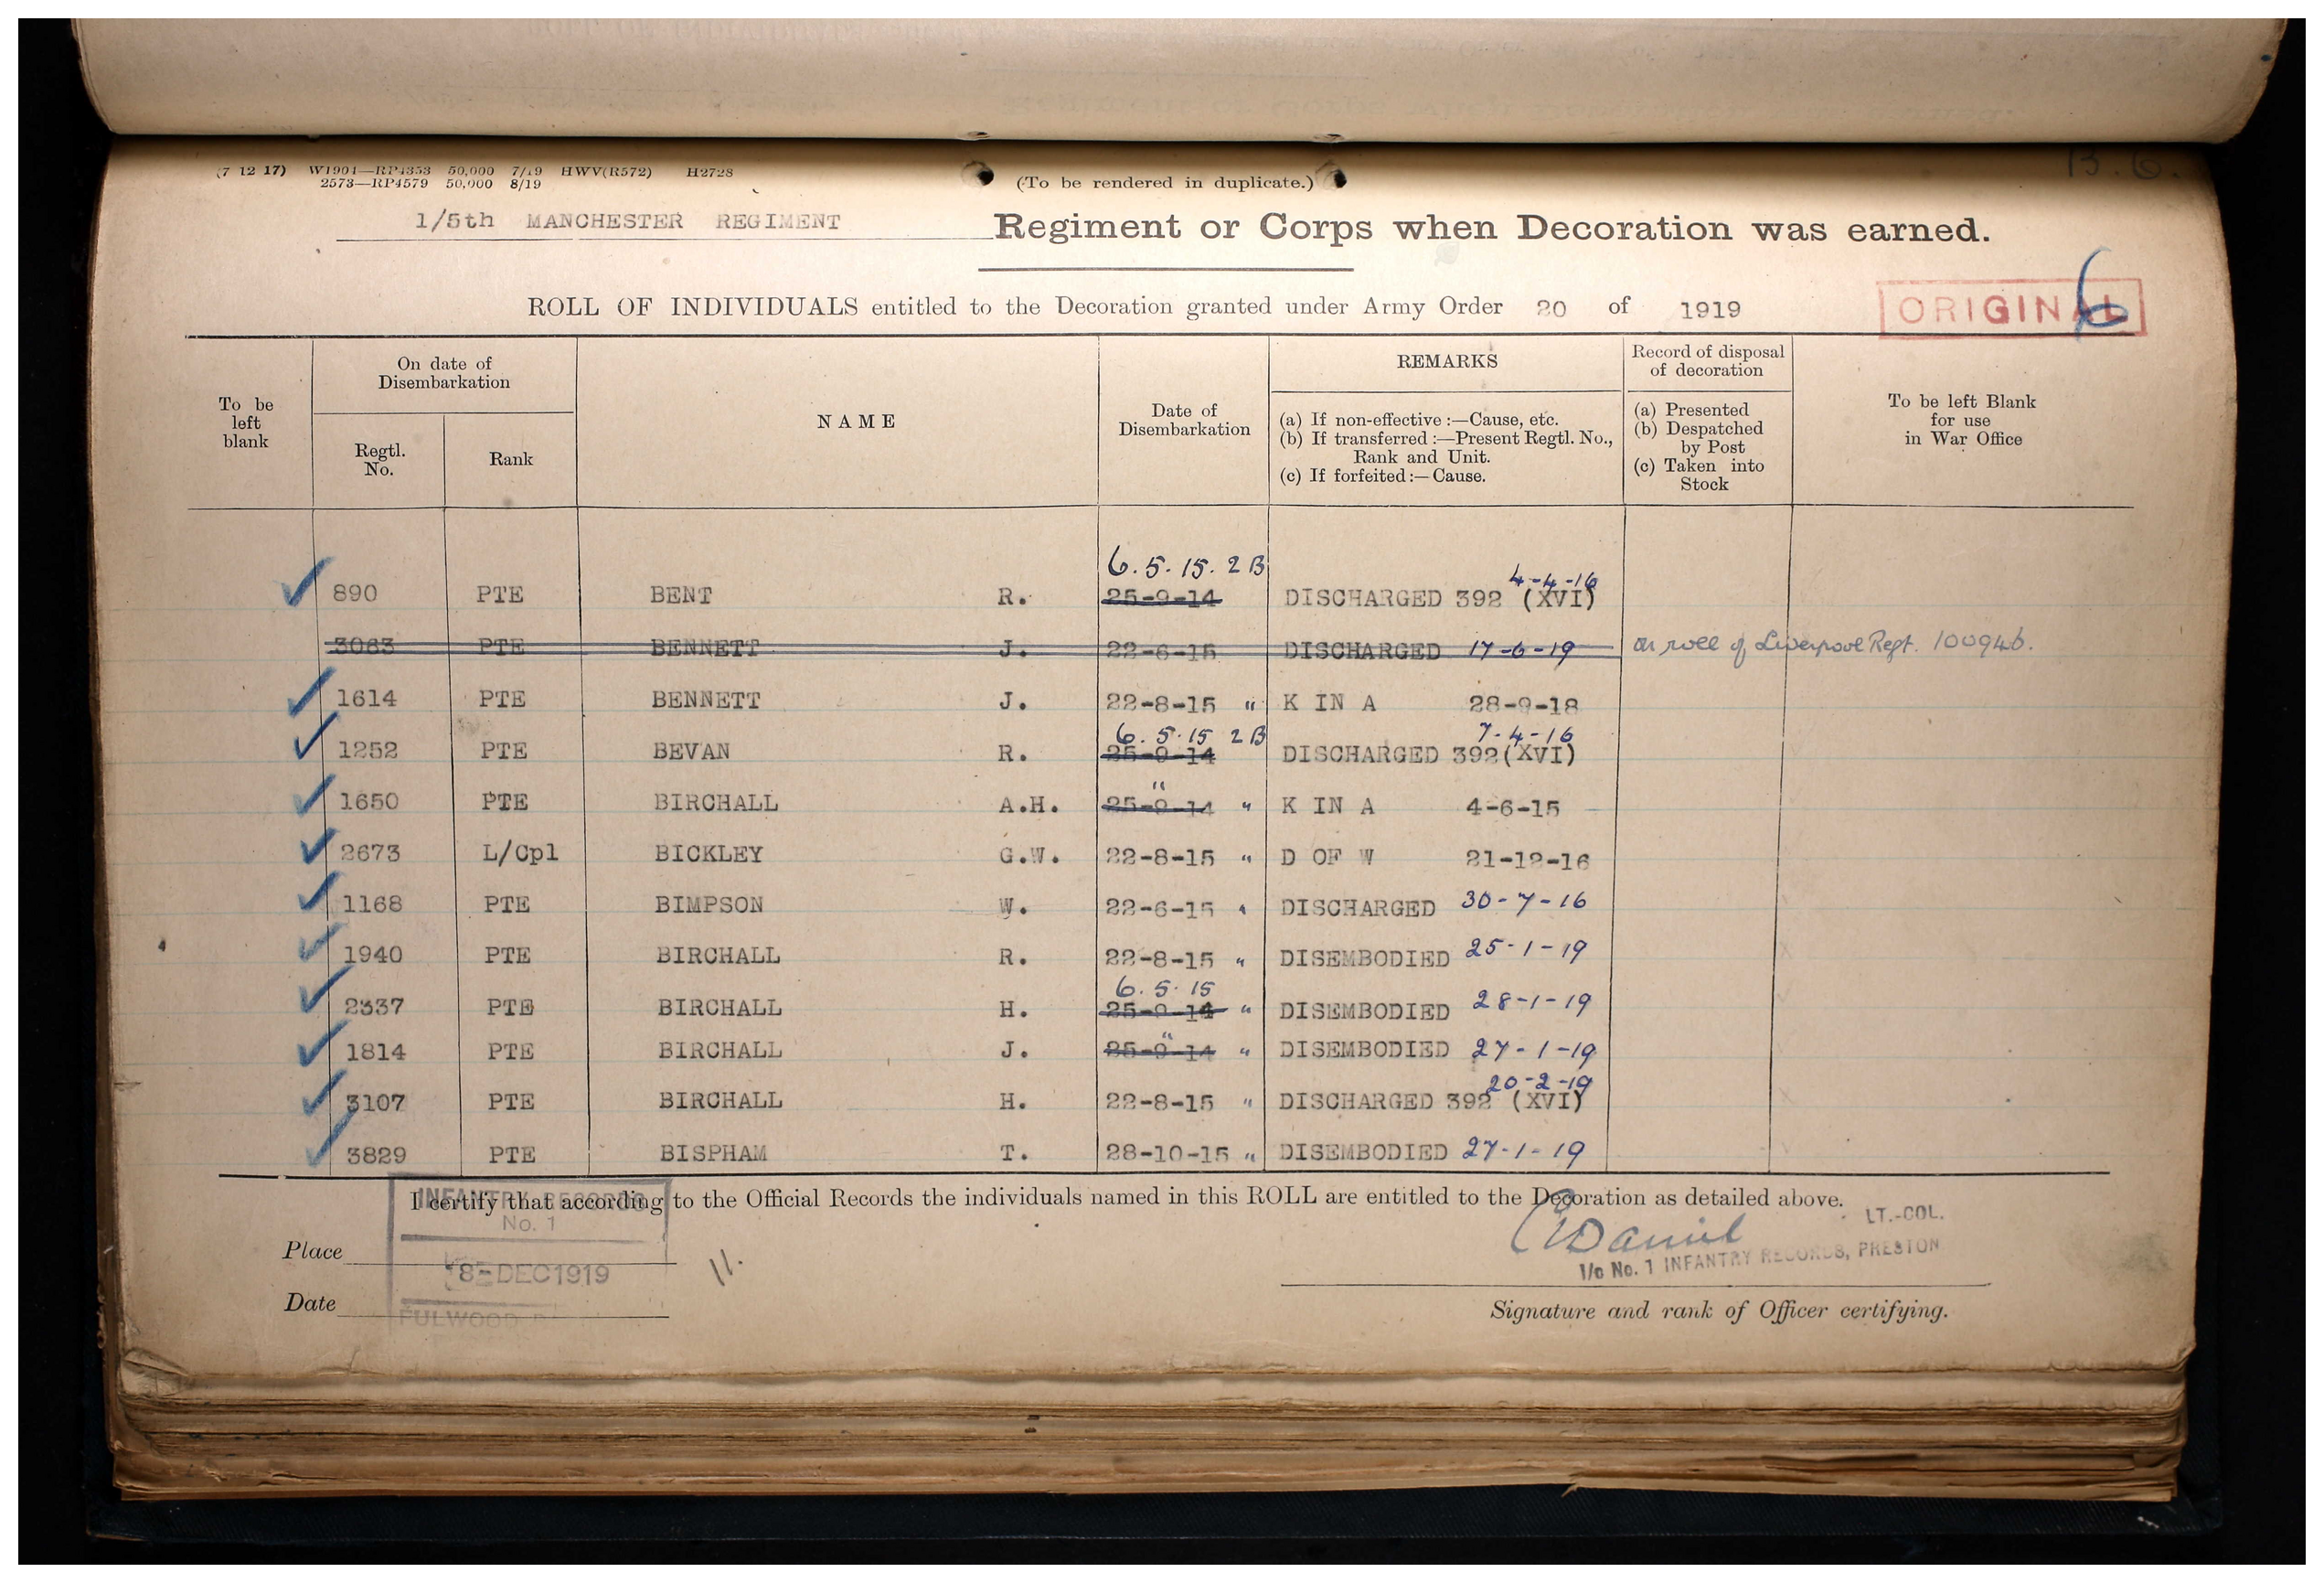 B. 6.
(7 12 17) W1901—RP4353 50,000 7/19 HWV(R572) H2728
2573—RP4579 50,000 8/19
(To be rendered in duplicate.)
1/5th MANCHESTER REGIMENT Regiment or Corps when Decoration was earned.
ROLL OF INDIVIDUALS entitled to the Decoration granted under Army Order 20 of 1919
ORIGINAL 6
To be left blank
On date of Disembarkation
Regtl. No.
Rank
NAME
Date of Disembarkation
REMARKS
(a) If non-effective :—Cause, etc.
(b) If transferred :—Present Regtl. No., Rank and Unit.
(c) If forfeited :—Cause.
Record of disposal of decoration
(a) Presented
(b) Despatched by Post
(c) Taken into Stock
To be left Blank for use in War Office
6.5.15. 2B 4-4-16
890 PTE BENT R. 25-9-14 DISCHARGED 392 (XVI)
3063 PTE BENNETT J. 22-6-15 DISCHARGED 17-6-19 On roll of Liverpool Regt. 100946.
1614 PTE BENNETT J. 22-8-15 " K IN A 28-9-18
6.5.15 2B 7-4-16
1252 PTE BEVAN R. 25-9-14 DISCHARGED 392(XVI)
"
1650 PTE BIRCHALL A.H. 25-9-14 " K IN A 4-6-15
2673 L/Cpl BICKLEY G.W. 22-8-15 " D OF W 21-12-16
1168 PTE BIMPSON W. 22-6-15 " DISCHARGED 30-7-16
1940 PTE BIRCHALL R. 22-8-15 " DISEMBODIED 25-1-19
6.5.15
2337 PTE BIRCHALL H. 25-9-14 " DISEMBODIED 28-1-19
"
1814 PTE BIRCHALL J. 25-9-14 " DISEMBODIED 27-1-19
20-2-19
3107 PTE BIRCHALL H. 22-8-15 " DISCHARGED 392 (XVI)
3829 PTE BISPHAM T. 28-10-15 " DISEMBODIED 27-1-19
I certify that according to the Official Records the individuals named in this ROLL are entitled to the Decoration as detailed above.
INFANTRY RECORDS
No. 1
8-DEC1919
FULWOOD
Place
Date
11.
Daniel
LT.-COL.
I/c No. 1 INFANTRY RECORDS, PRESTON
Signature and rank of Officer certifying.